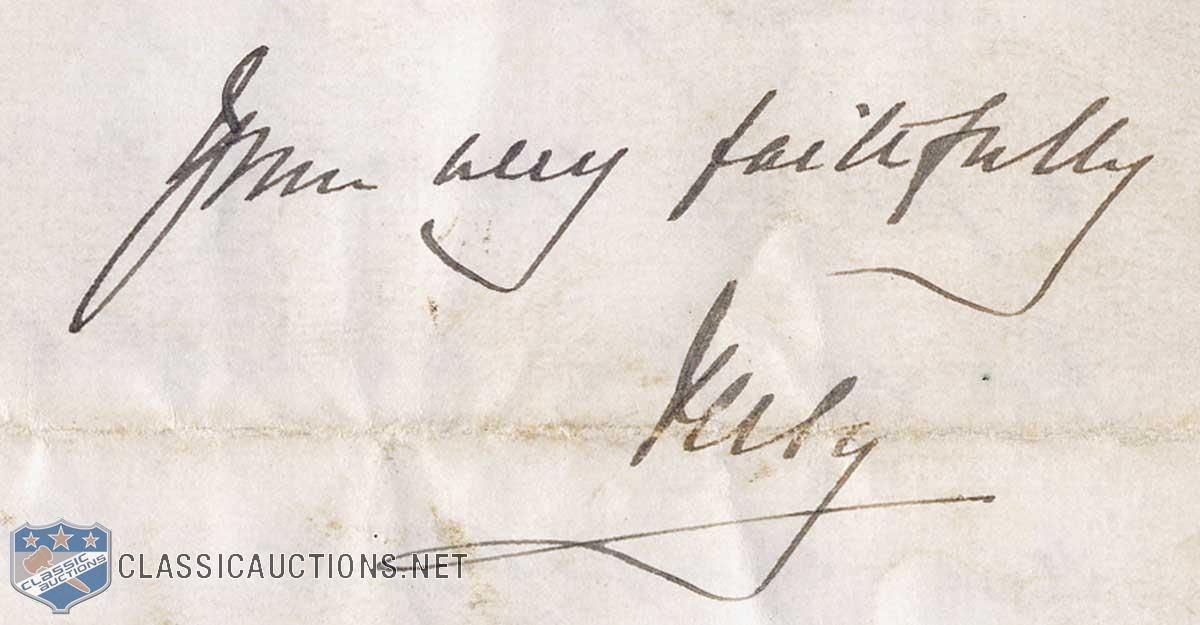 Yours very faithfully
Derby
CLASSIC
AUCTIONS
CLASSICAUCTIONS.NET